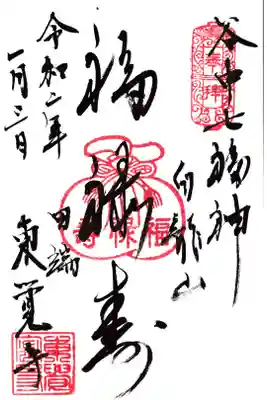 奉拝
谷中七福神
白龍山
福禄寿
福禄寿
田端
東覚寺
令和二年
一月三日